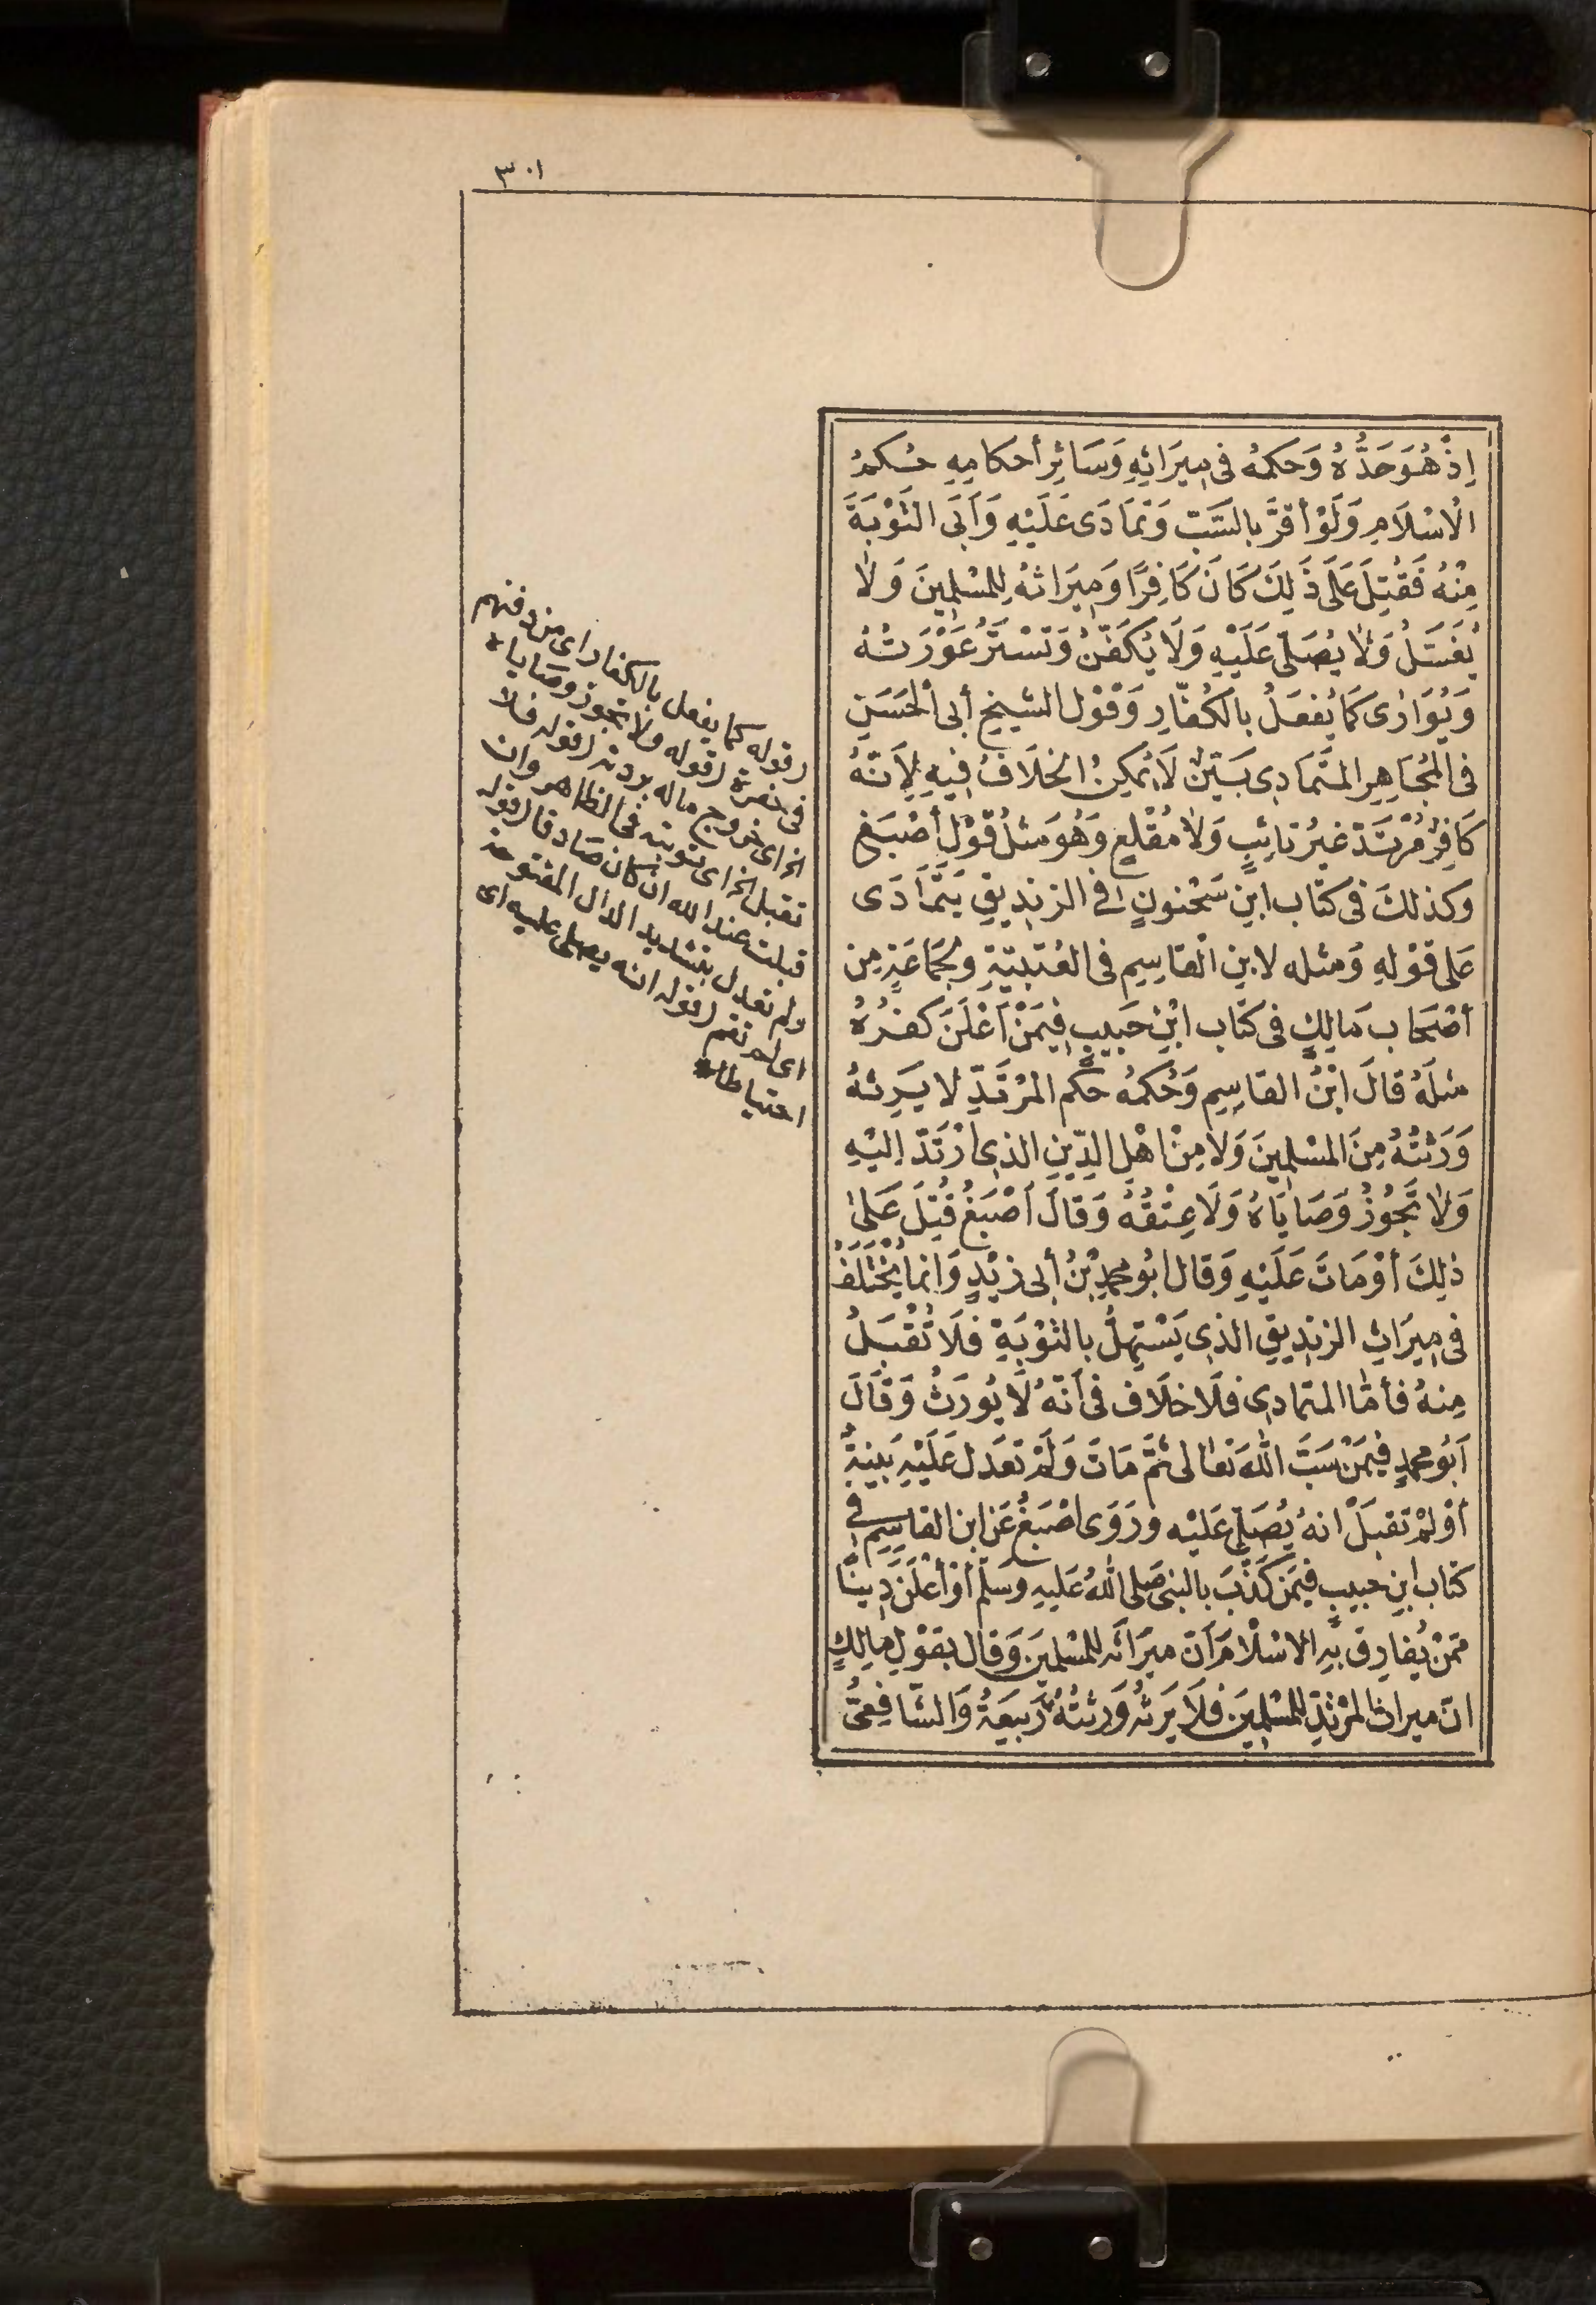 ٣٠١
اِذْ هُوَ حَدُّهُ وَحكمُه فى مِيرَاثِهِ وَسَائِرِ أحكامِهِ حُكمُ
الْاسْلَامِ وَلَوْ أقَرَّ بالسَّبِّ وَتمَادَى عَلَيْهِ وَأبَى التَّوْبَةَ
مِنْهُ فَقُتِلَ عَلَى ذَلِكَ كَانَ كَافِرًا وَمِيرَاثهُ لِلمُسْلِمِينَ وَلَا
يُغسَّلُ وَلَا يُصَلَّى عَلَيْهِ وَلَا يُكَفَّنُ وَتسْترُ عَوْرَتُهُ
وَيُوَارَى كَمَا يُفعَلُ بالكُفَّارِ وَقَوْل الشيخِ أبى الْحَسَنِ
فى الْمُجَاهِرِ المتَمَادِى بَيِّنٌ لَا يُمكِنُ الخلَافُ فِيهِ لِأنَّهُ
كَافِرٌ مُرْتَدٌّ غيرُ تائِبٍ وَلَا مُقْلِعٍ وَهُوَ مثلُ قَوْلِ أَصْبَغ
وكذلكَ فى كتَاب ابنِ سَحْنونٍ فى الزنْدِيقِ يَتَمَادَى
عَلى قوْلِهِ وَمثله لابنِ الْقاسِمِ فى العُتبيّةِ وَلجَمَاعَةٍ مِن
أصْحَاب مَالِكٍ فى كتَاب ابْنِ حَبِيبٍ فِيمَنْ أعْلَنَ كفرُهُ
مثلَهُ قالَ ابْنُ القاسِمِ وَحُكمُهُ حكم المُرْتَدِّ لا يَرِثهُ
وَرَثَتُهُ مِنَ المسْلِمِينَ وَلا مِنْ اهْلِ الدِّينِ الذِى ارْتَدّ اِليْهِ
وَلا تَجُوزُ وَصَايَاهُ وَلَا عِتْقُهُ وَقالَ أصْبَغُ قُتِلَ عَلىٰ
ذلِكَ أوْ مَاتَ عَلَيْهِ وَقال ابُو محمدٍ بْنُ أبى زيْدٍ وَانما يُخْتَلَفُ
فى مِيرَاثِ الزندِيقِ الذِى يَسْتَهِلُّ بالتوْبَةِ فلَا تُقْبَلُ
مِنهُ فأمّا المتمادِى فلَا خلَاف فى أنّهُ لَا يُورَثُ وَقَالَ
أبُو محمدٍ فِيمَنْ سَبَّ اللهَ تعَالى ثمّ مَاتَ وَلَمْ تعَدل عَلَيْهِ بَينةٌ
أوْ لمْ تقبَلْ انهُ يُصَلى عَلَيْه ورَوَى اصْبَغُ عَن ابن القاسِمِ فى
كتَاب ابنِ حَبيبٍ فيمَن كَذَّبَ بالنبى صَلى اللهُ عَلَيهِ وَسَلّم أوْ أعْلَنَ دِينًا
مّمنْ يُفارِق بِهِ الاسْلَامَ أنّ ميرَاثه للمُسْلمِينَ وَقال بقوْلِ مالِكٍ
انّ ميراث المرْتدِّ للمُسْلِمِينَ فلَا يَرِثهُ وَرثتُهُ رَبيعَةُ وَالشافِعىُّ
(قوله كما يفعل بالكفار) اى من دفنهم
فى حفرة (قوله ولا تجوز وصاياه
الخ) اى خروج ماله بردته (قوله فلا
تقبل الخ) اى توبته فى الظاهر وان
قبلت عند الله ان كان صادقا (قوله
ولم تعدل) بتشديد الدال المفتوحة
اى لم تقم (قوله انه يصلى عليه) اى
احتياطا